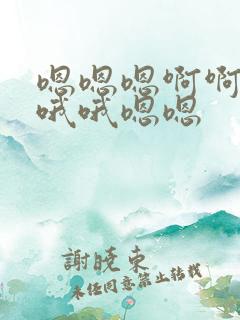 嗯嗯嗯啊啊
哦哦嗯嗯
謝曉東
未經同意禁止轉載